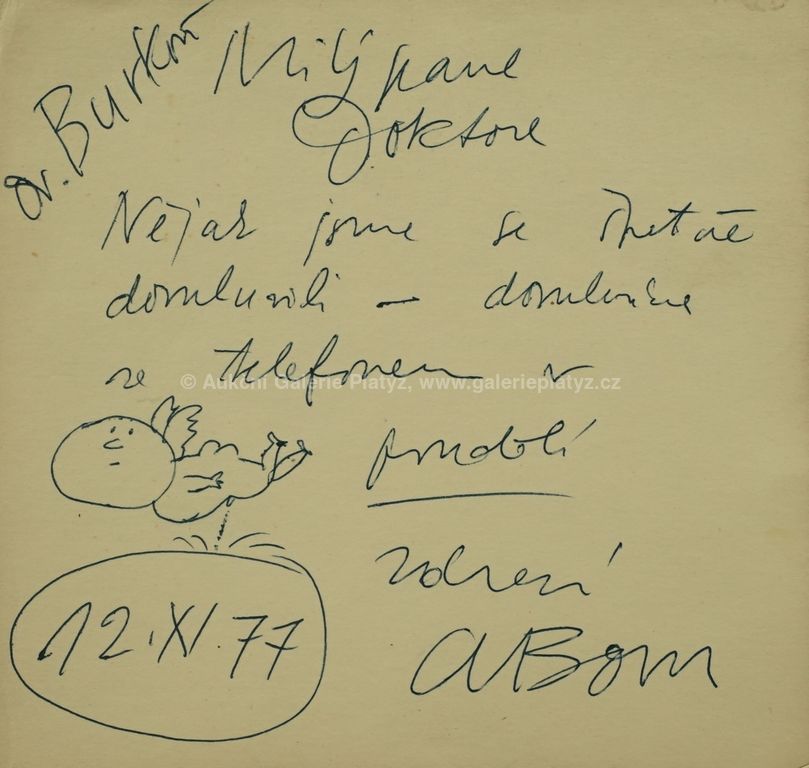 Dr. Burkoň
Milý pane
Doktore
Nějak jsme se
domluvili – domluvíme
se telefonem v
pondělí
zdraví
ABorn
12.XI.77
© Aukční Galerie Platýz, www.galerieplatyz.cz